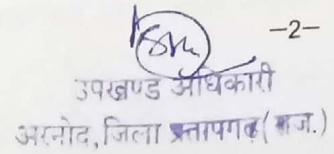 -2-
उपखण्ड अधिकारी
अरनोद, जिला प्रतापगढ़ (राज.)